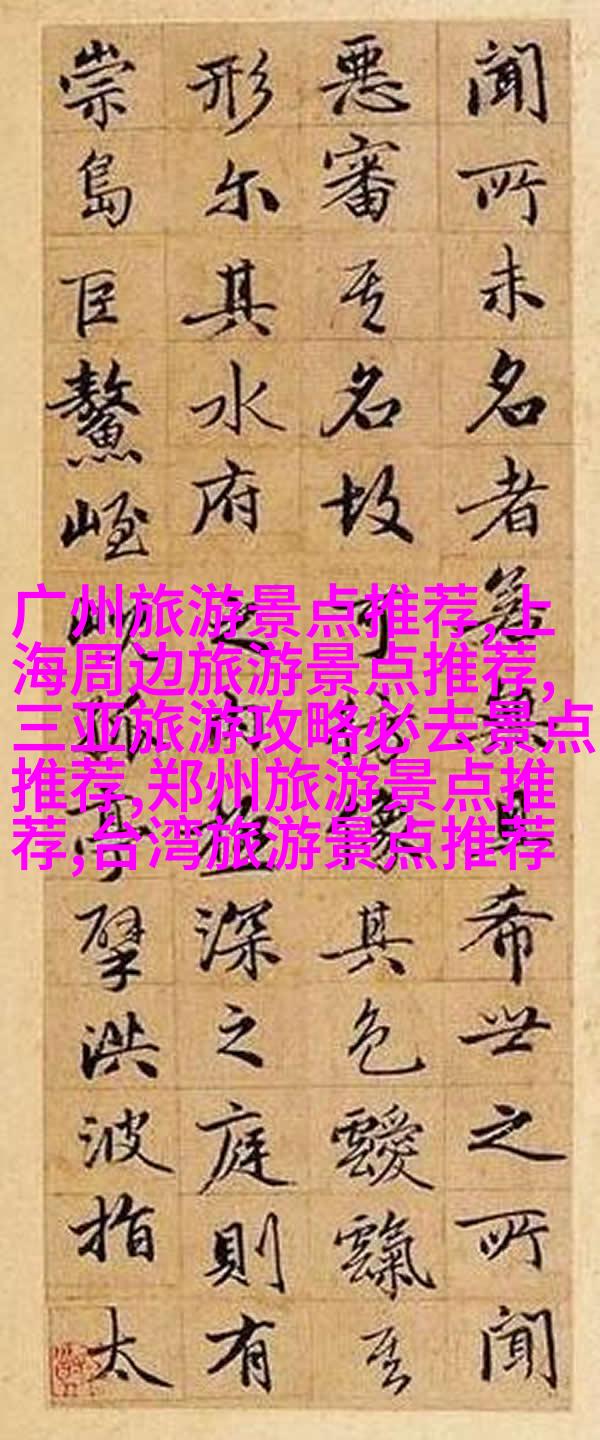 聞所未名者若無且希世之所聞
惡審其名故可像其色靉霼其
形尔其水府之内極深之庭則有
崇島巨鰲峌峴孤亭擘洪波指太
广州旅游景点推荐,上
海周边旅游景点推荐,
三亚旅游攻略必去景点
推荐,郑州旅游景点推
荐,台湾旅游景点推荐